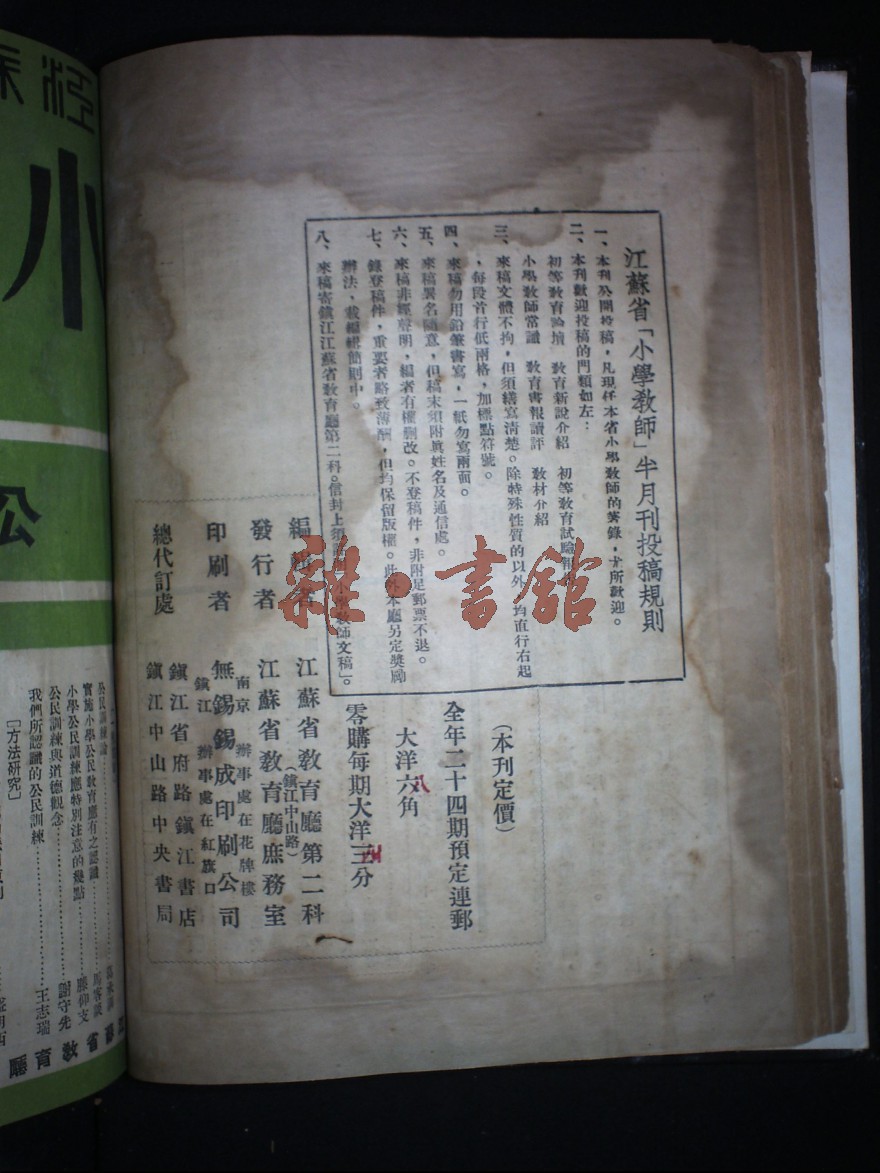 江蘇省「小學敎師」半月刊投稿規則
一、本刊公開投稿，凡現任本省小學敎師的著錄，尤所歡迎。
二、本刊歡迎投稿的門類如左：
初等敎育論壇　敎育新說介紹　初等敎育試驗報
小學敎師常識　敎育書報讀評　敎材介紹
三、來稿文體不拘，但須繕寫淸楚。除特殊性質的以外　均直行右起
，每段首行低兩格，加標點符號。
四、來稿勿用鉛筆書寫，一紙勿寫兩面。
五、來稿署名隨意，但稿末須附眞姓名及通信處。
六、來稿非經聲明，編者有權刪改。不登稿件，非附足郵票不退。
七、錄登稿件，重要者略致薄酬，但均保留版權。此外本廳另定獎勵
辦法，載編輯簡則中。
八、來稿寄鎭江江蘇省敎育廳第二科。信封上須　敎師文稿」。
（本刊定價）
全年二十四期預定連郵
大洋六角
八
零購每期大洋三分
四
編　者　江蘇省敎育廳第二科
（鎭江中山路）
發行者　江蘇省敎育廳庶務室
印刷者　無錫錫成印刷公司
南京　辦事處在花牌樓
鎭江　辦事處在紅旗口
總代訂處　鎭江省府路鎭江書店
鎭江中山路中央書局
雜·書館
小
公
公民訓練論
實施小學公民敎育應有之認識
小學公民訓練應特別注意的幾點　滕仰支
公民訓練與道德觀念　謝守先
我們所認識的公民訓練　王志瑞
［方法硏究］
省敎育廳